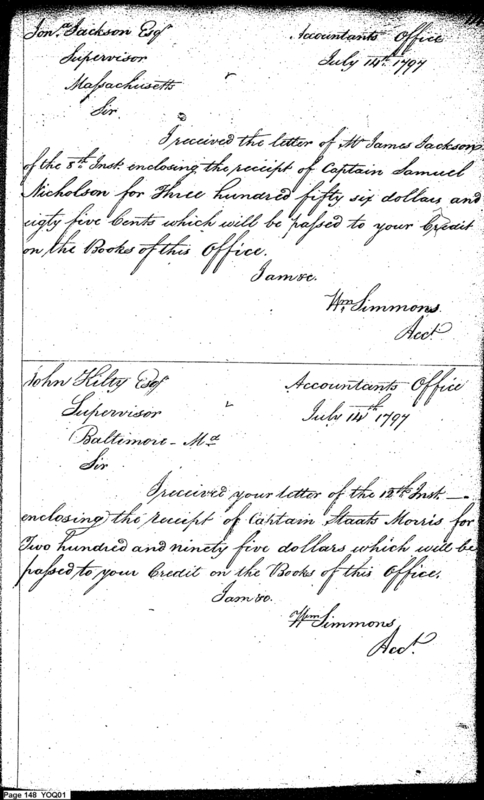 Jona. Jackson Esqr
Accountants Office
Supervisor
July 14th 1797
Massachusetts
Sir
I received the letter of Mr James Jackson
of the 8th Inst. enclosing the receipt of Captain Samuel
Nicholson for Three hundred fifty six dollars and
eigty five Cents which will be passed to your Credit
on the Books of this Office.
I am &c.
Wm Simmons
Acct.
John Kilty Esqr
Accountants Office
Supervisor
July 14th 1797
Baltimore - Md
Sir
I received your letter of the 12th Inst. —
enclosing the receipt of Captain Staats Morris for
Two hundred and ninety five dollars which will be
passed to your Credit on the Books of this Office.
I am &c.
Wm Simmons
Acct.
Page 148 YOQ01